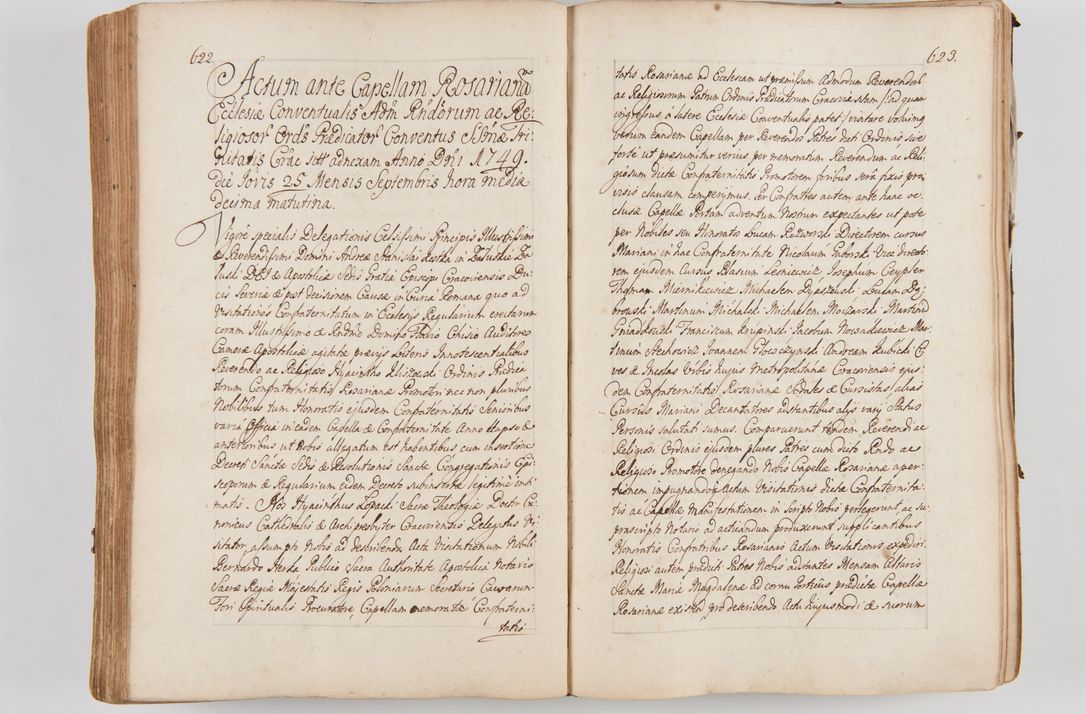 622.
Actum ante Capellam Rosarianam
Ecclesiæ Conventualis Adm Rndorum ac Re-
ligiosor Ordis Prædicator Conventus SSmæ Tri-
nitatis Crac adnexam Anno Dni 1749.
die Jovis 25. Mensis Septembris hora media
decima matutina.
Vigore specialis Delegationis Celsissimi Principis Illustrissimi
& Reverendissimi Domini Andreæ Stanislai Kostka in Załuskie Za-
luski Dei & Apostolicæ Sedis Gratia Episcopi Cracoviensis Du-
cis Severiæ & post decisionem Causæ in Curia Romana quo ad
Visitationes Confraternitatum in Ecclesijs Regularium erectarum
coram Illustrissimo & Rndmo Domino Flavio Chisio Auditore
Cameræ Apostolicæ agitatæ prævijs Literis Innotescentialibus
Reverendo ac Religioso Hyacintho Ordinis Prædica-
torum Confraternitatis Rosarianæ Promotori nec non pluribus
Nobilibus tum Honoratis ejusdem Confraternitatis Senioribus
varia Officia in eadem Capella & Confraternitate Anno elapso &
anterioribus ut Nobis allegatum est habentibus cum insertione
Decreti Sanctæ Sedis & Resolutionis Sanctæ Congregationis Epi-
scoporum & Regularium eidem Decreto subinsertæ legitime inti-
matis. Nos Hyacinthus Łopacki Sacræ Theologiæ Doctor Ca-
nonicus Cathedralis & Archipresbiter Cracoviensis Delegatus Vi-
sitator, assumpto Nobis ad describenda Acta Visitationum Nobili
Bernardo Herka Publico Sacra Authoritate Apostolica Notario
Sacræ Regiæ Majestatis Regis Poloniarum Secretario Causarum
Fori Spiritualis Procuratore, Capellam memoratæ Confraterni-
tatis

623.
tatis Rosarianæ ad Ecclesiam ut præmissum Admodum Reverendorum
ac Religiosorum Patrum Ordinis Prædicatorum Cracoviæ sitam /: ad quam
ingressus a latere Ecclesiæ Conventualis patet :/ visitare volumus
verum eandem Capellam per Reverendos Patres dicti Ordinis, sive
forte ut præsumitur verius per memoratum Reverendum ac Reli-
giosum dictæ Confraternitatis Promotorem foribus sera fixis pro-
visis clausam comperimus. Per Confratres autem ante hanc oc-
clusæ Capellæ Portam adventum Nostrum expectantes ut pote
per Nobiles seu Honoratos Lucam Directorem cursus
Mariani in hac Confraternitate Nicolaum Vice directo-
rem ejusdem Cursus Blasium Lesniewicz Josephum Ceypler
Thomam Miernikiewicz Michaelem Dudam Do-
browski Martinum Michalski Michaelem Mozzarski Martinum
Gniadkowski Franciscum Krupinski Jacobum Nowakiewicz Mar-
tinum Stechowicz Joannem Głoszczynski Andream Kubicki Ci-
ves & Incolas Urbis hujus Metropolitanæ Cracoviensis ejus-
dem Confraternitatis Rosarianæ Sodales & Cursistas /: alias
Cursus Mariani Decantatores adstantibus alijs varij Status
Personis salutati sumus. Comparuerunt tandem Reverendi ac
Religiosi Ordinis ejusdem plures Patres cum dicto Rndo ac
Religioso Promotore denegando Nobis Capellæ Rosarianæ aper-
tionem impugnandoq Actum Visitationis dictæ Confraternita-
tis ac Capellæ Manifestationem in Scripto Nobis perlegerunt, ac su-
prascripto Notario ad acticandum produxerunt supplicantibus
Honoratis Confratribus Rosarianis Actum Visitationis expediri.
Religiosi autem prædicti Patres Nobis adstantes Mensam Altaris
Sanctæ Mariæ Magdalenæ ad cornu Porticus prædictæ Capellæ
Rosarianæ existen pro describendo Actu hujusmodi & suorum